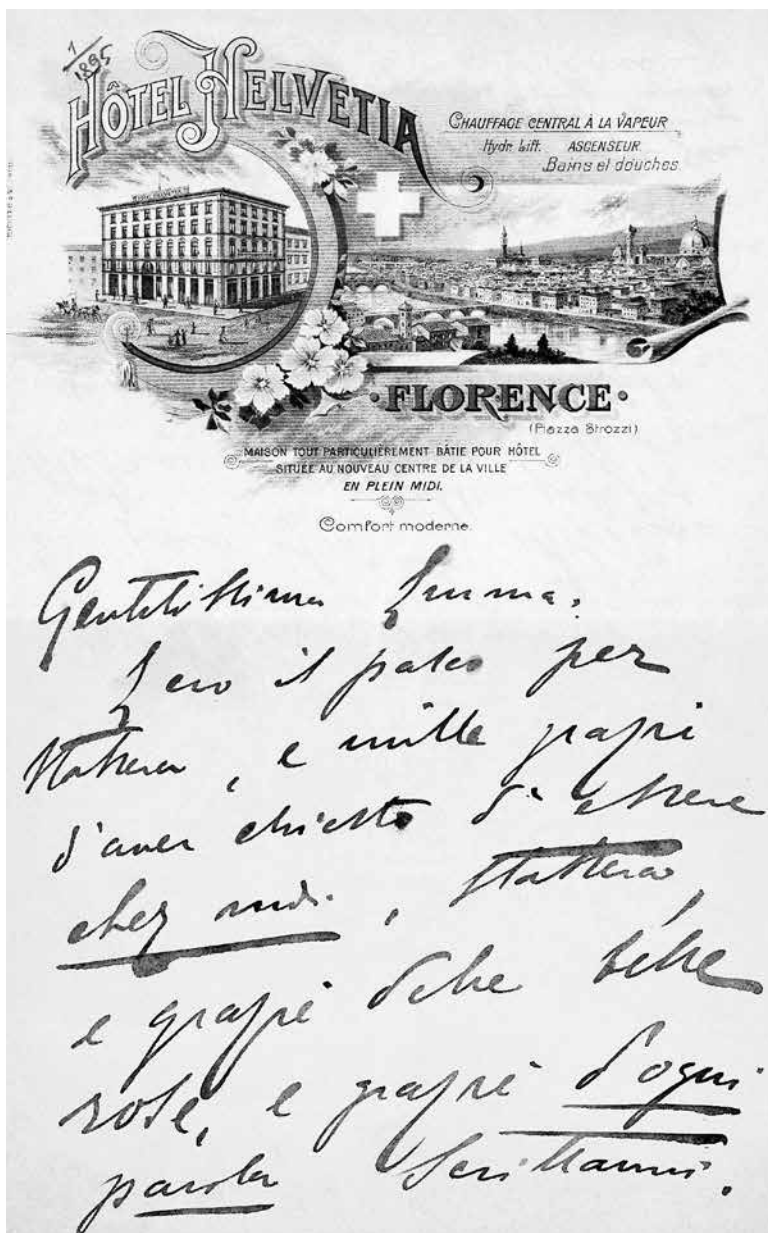 1/1895
HÔTEL HELVETIA
CHAUFFAGE CENTRAL À LA VAPEUR
Hydr. Lift. ASCENSEUR.
Bains et douches.
·FLORENCE·
(Piazza Strozzi)
MAISON TOUT PARTICULIÈREMENT BÂTIE POUR HÔTEL
SITUÉE AU NOUVEAU CENTRE DE LA VILLE
EN PLEIN MIDI.
Comfort moderne.
Gentilissima Emma.
Ecco il palco per
stasera, e mille grazie
d'aver chiesto d'essere
chez , stasera,
e grazie delle belle
rose, e grazie d'ogni
parola scrittami.